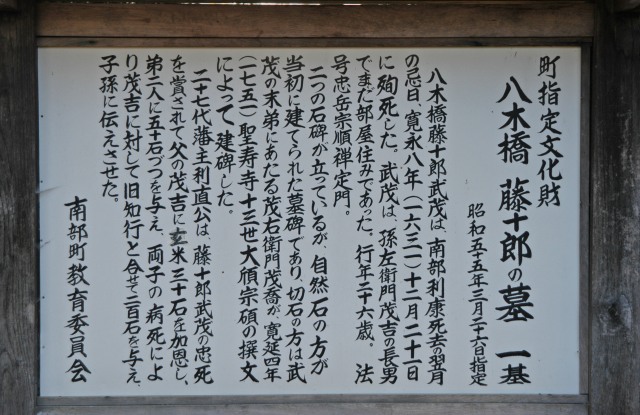 町指定文化財
八木橋 藤十郎の墓 一基
昭和五十五年三月二十六日指定
八木橋藤十郎武茂は、南部利康死去の翌月
の忌日、寛永八年(一六三一)十二月二十一日
に殉死した。武茂は、孫左衛門茂吉の長男
でまだ部屋住みであった。行年二十六歳。法
号忠岳宗順禅定門。
二つの石碑が立っているが、自然石の方が
当初に建てられた墓碑であり、切石の方は武
茂の末弟にあたる茂右衛門茂喬が、寛延四年
(一七五一)聖寿寺十三世大頎宗碩の撰文
によって建碑した。
二十七代藩主利直公は、藤十郎武茂の忠死
を賞されて父の茂吉に玄米三十石を加恩し、
弟二人に五十石づつを与え、両子の病死によ
り茂吉に対して旧知行と合せて二百石を与え、
子孫に伝えさせた。
南部町教育委員会